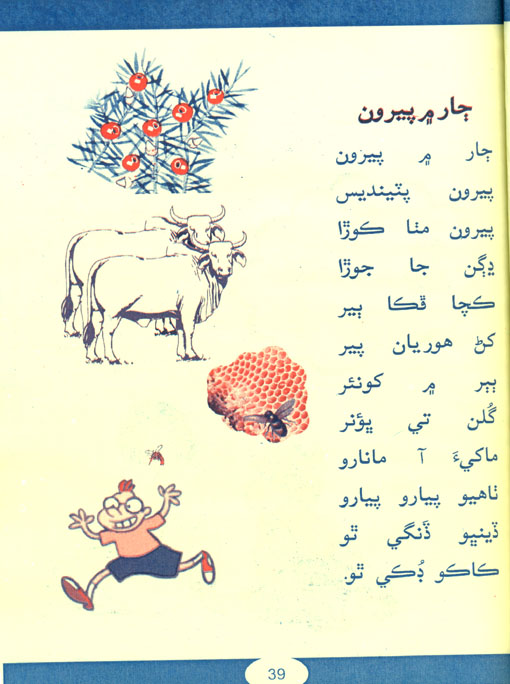 ڄار ۾ پيرون
ڄار ۾ پيرون
پيرون پٽينديس
پيرون مٺا ڪوڙا
ڍڳن جا جوڙا
ڪچا ڦڪا ٻير
کڻ هوريان پير
ٻٻر ۾ ڪونئر
گُلن تي ڀؤنر
ماکيءَ آ مانارو
ٺاهيو پيارو پيارو
ڏينڀو ڏَنگي ٿو
ڪاڪو ڊُڪي ٿو.
39